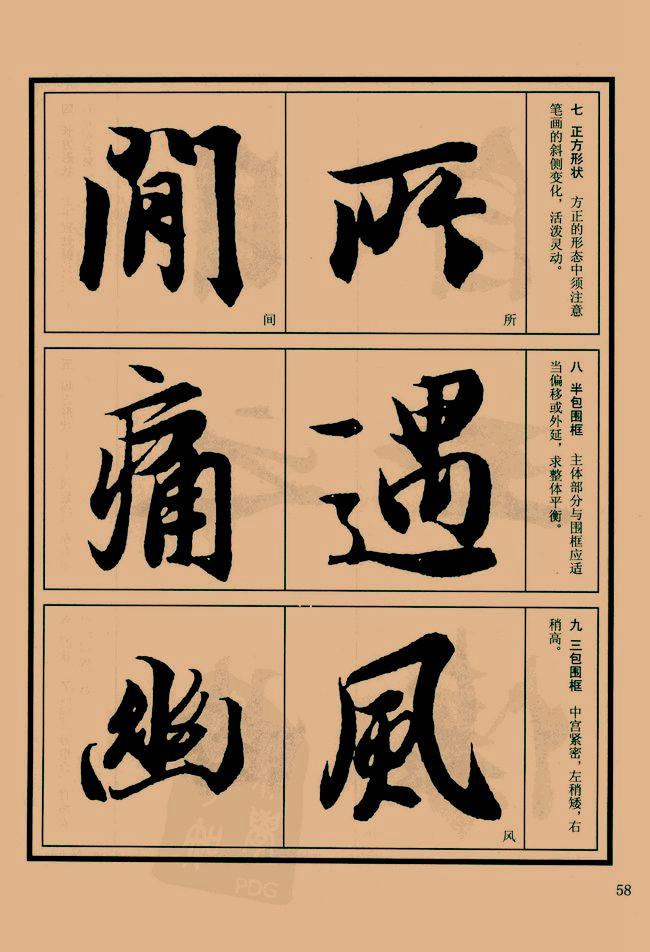 七 正方形状 方正的形态中须注意
笔画的斜侧变化，活泼灵动。
所
所
閒
间
八 半包围框 主体部分与围框应适
当偏移或外延，求整体平衡。
遇
痛
九 三包围框 中宫紧密，左稍矮，右
稍高。
風
风
幽
PDG
58